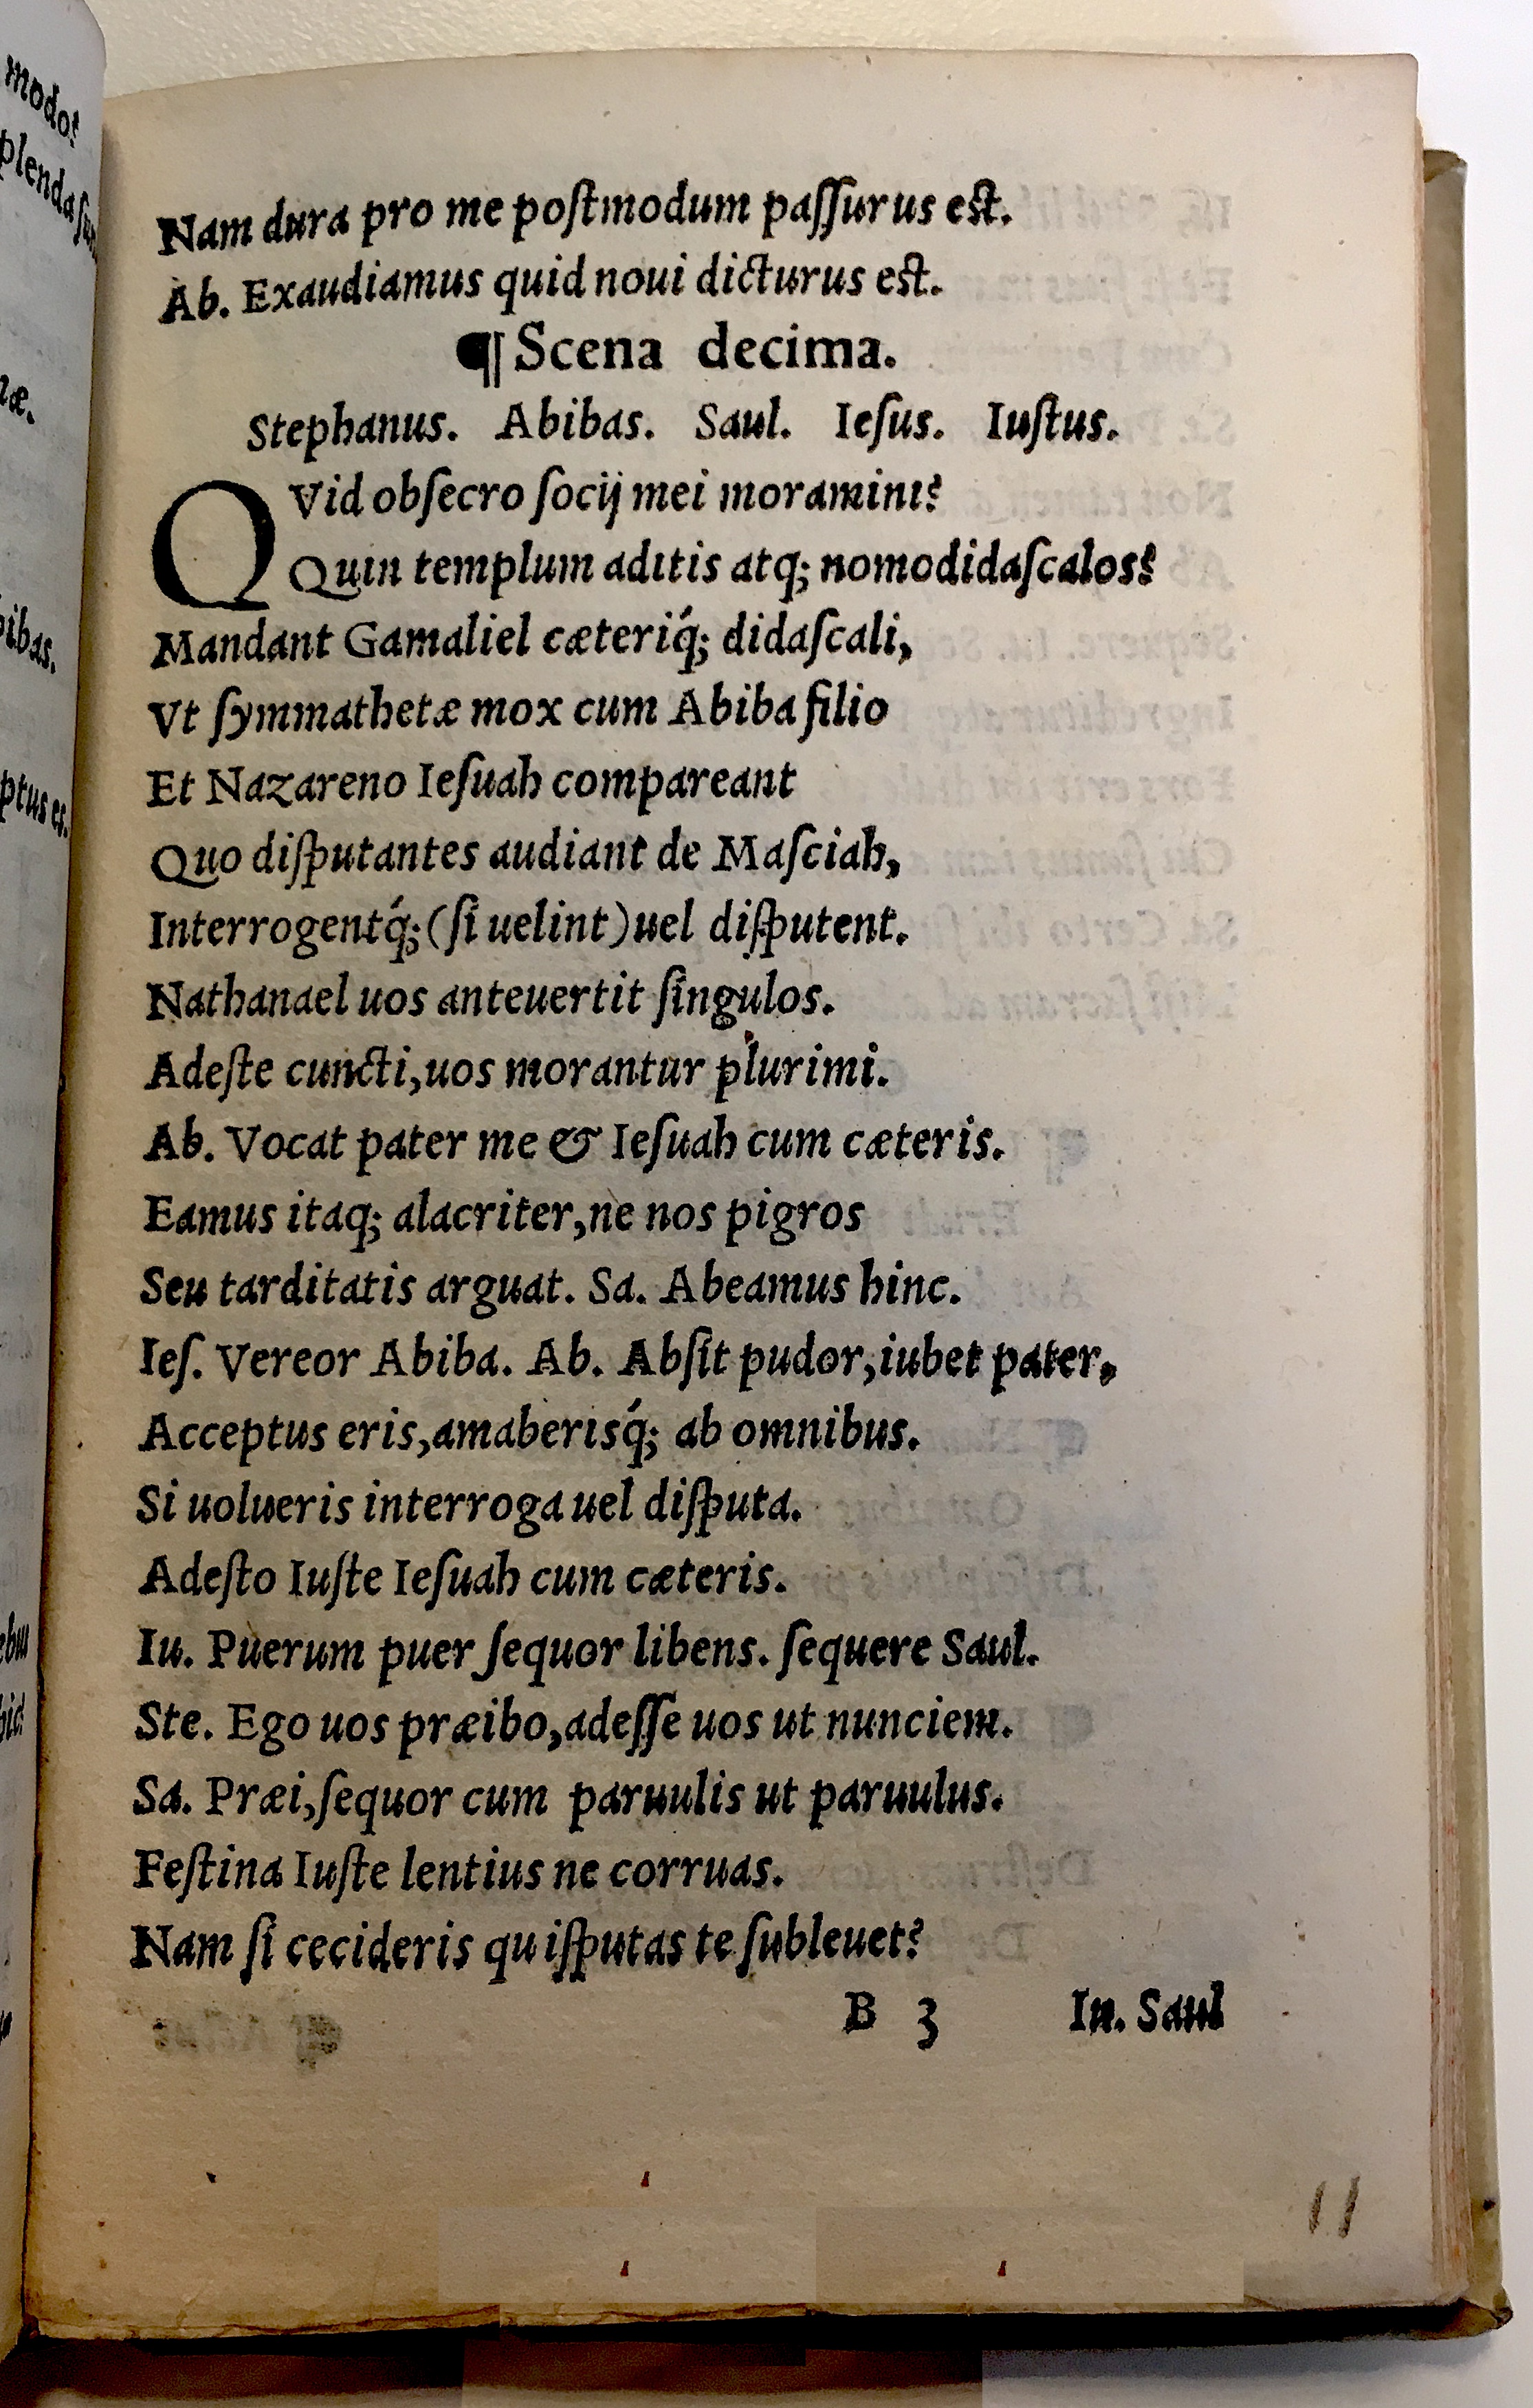 Nam dura pro me poſtmodum paſſurus eſt.
Ab. Exaudiamus quid noui dicturus eſt.
¶ Scena decima.
Stephanus. Abibas. Saul. Ieſus. Iuſtus.
QVid obſecro ſocij mei moramini?
Quin templum aditis atq; nomodidaſcalos?
Mandant Gamaliel cæteriq́; didaſcali,
Vt ſymmathetæ mox cum Abiba filio
Et Nazareno Ieſuah compareant
Quo diſputantes audiant de Maſciah,
Interrogentq́; (ſi uelint) uel diſputent.
Nathanael uos anteuertit ſingulos.
Adeſte cuncti, uos morantur plurimi.
Ab. Vocat pater me & Ieſuah cum cæteris.
Eamus itaq; alacriter, ne nos pigros
Seu tarditatis arguat. Sa. Abeamus hinc.
Ieſ. Vereor Abiba. Ab. Abſit pudor, iubet pater,
Acceptus eris, amaberisq́; ab omnibus.
Si uolueris interroga uel diſputa.
Adeſto Iuſte Ieſuah cum cæteris.
Iu. Puerum puer ſequor libens. ſequere Saul.
Ste. Ego uos præibo, adeſſe uos ut nunciem.
Sa. Præi, ſequor cum paruulis ut paruulus.
Feſtina Iuſte lentius ne corruas.
Nam ſi cecideris quiſputas te ſubleuet?
B 3 Iu. Saul
11